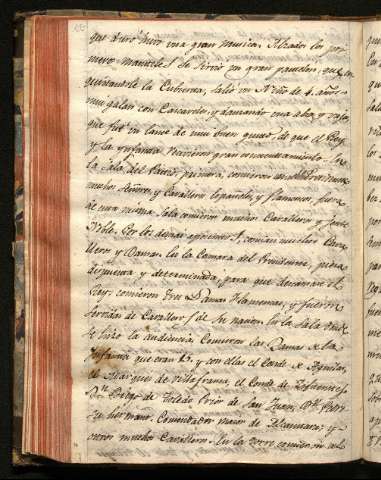 que duro huvo una gran musica. Alzados los pri-
meros manteles se sirvió un gran pastelon, que en
quitandole la cubierta, salio un Niño de 4. años
mui galan con Cascaveles, y danzando una alta, y
que fue un lance de mui buen gusto, de que el Rey
y la Ynfanta tuvieron gran contentamiento. En
la Sala del Patio, primera, comieron
muchos Señores, y Cavalleros Españoles, y flamencos, fuera
de esta misma Sala comieron muchos Cavalleros, y gente
Noble. Por los demas aposentos, comian muchos Cava-
lleros, y Damas. En la Camara del Presidente, pieza
de juntura, y determinada, para que descansase el
Rey: comieron tres Damas Flamencas, y fueron
servidas de Cavalleros de su nacion. En la Sala donde
se hizo la audiencia, comieron las Damas de la
Ynfanta que eran 15. y con ellas el Conde de Aguilar,
el Marques de Villafranca, el Conde de
Dn. Diego de Toledo Prior de San Juan,
su hermano, Comendador maior de Alcantara; y
otros muchos Cavalleros. En la torre comieron